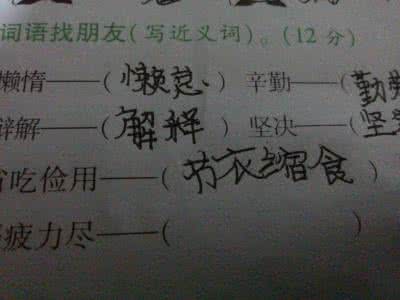 词语找朋友(写近义词)。(12分)
懒惰——(懒怠) 辛勤——(勤
辩解——(解释) 坚决——(坚
省吃俭用——(节衣缩食)
疲力尽——( )